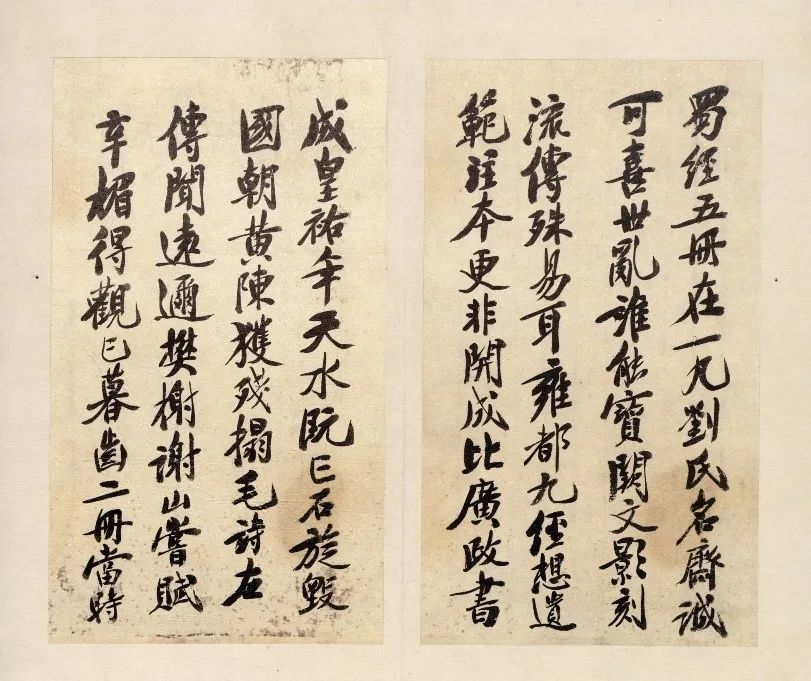 蜀經五冊在一几劉氏名齋誠
可喜世亂誰能寶闕文影刻
流傳殊易耳雍都九經想遺
範註本更非開成比廣政書
成皇祐年天水既亡石旋毀
國朝黃陳獲殘搨毛詩左
傳聞遠邇樊榭謝山嘗賦
辛楣得觀已暮齒二冊當時